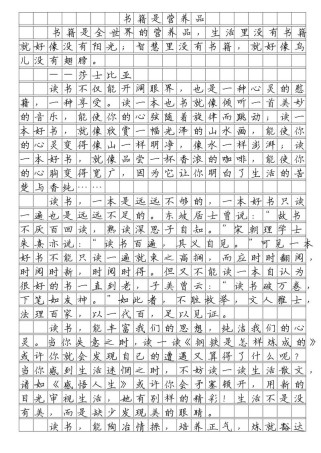 书籍是营养品
书籍是全世界的营养品，生活里没有书籍
就好像没有阳光；智慧里没有书籍，就好像鸟
儿没有翅膀。
——莎士比亚
读书不仅能开阔眼界，也是一种心灵的慰
藉，一种享受。读一本也书就像倾听一首美妙
的音乐，能使你的心弦随着旋律而跳动；读一
本好书，就像欣赏一幅光泽的山水画，能使你
的心灵变得像山一样明净，像水一样澎湃；读
一本好书，就像品尝一杯香浓的咖啡，能使你
的心胸变得宽广，因为它让你明白了生活的苦
楚与香纯……
读书，一本是远远不够的，一本好书只读
一遍也是远远不足的。东坡居士曾说：“故书
不厌百回读，熟读深思子自知。”宋朝理学士
朱熹亦说：“读书百遍，其义自见。”可见一本
好书不能只读一遍就束之高阁，而应时时翻阅，
时阅时新，时阅时得。但又不能读一本自认为
很好的书一直到老，子美曾云：“读书破万卷，
下笔如有神。”如此者，不胜枚举，文人雅士，
法理百家，以一代百，足以见证。
读书，能丰富我们的思想，纯洁我们的心
灵。当你失意之时，读一读《钢铁是怎样炼成的》
或许你就会发现自己的遭遇又算得了什么呢？
当你感到生活迷惘之时，不妨读一读生活散文，
请如《感悟人生》或许会矛塞顿开，用新的
目光审视生活，你会有别样的精彩！生活不是没
有美，而是缺少发现美的眼睛。
读书，能陶冶情操，培养正气，炼就豁达